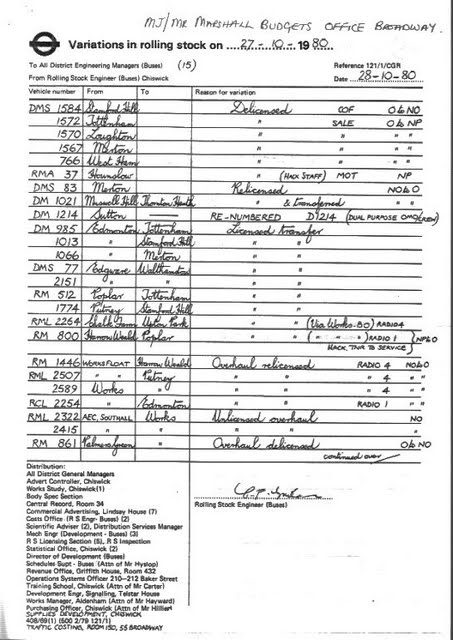 MJ/MR MARSHALL BUDGETS OFFICE BROADWAY.
Variations in rolling stock on ....27-.-10.-.1980....
To All District Engineering Managers (Buses) (15)
Reference 121/1/CGR
From Rolling Stock Engineer (Buses) Chiswick
Date 28-10-80
Vehicle number From To Reason for variation
DMS 1584 Stamford Hill Delicensed COF O6NO
1572 Tottenham " SALE O6 NP
1570 Loughton " " " "
1567 Merton " " " "
766 West Ham " " " "
RMA 37 Hounslow " (HACK STAFF) MOT NP
DMS 83 Merton Relicensed NO6O
DM 1021 Muswell Hill Thornton Heath " & transferred " "
DM 1214 Sutton — RE-NUMBERED D1214 (DUAL PURPOSE OMO/CREW)
DM 985 Edmonton Tottenham Licensed transfer
1013 " Stamford Hill " "
1066 " Merton " "
DMS 77 Edgware Walthamstow " "
2151 " " " "
RM 512 Poplar Tottenham " "
1774 Putney Stamford Hill " "
RML 2264 Chalk Farm Upton Park " " (Via Works-80) RADIO4
RM 800 Harrow Weald Poplar " " ( " " " ) RADIO 1 NP6O
HACK, TNR TO SERVICE)
RM 1446 WORKS FLOAT Harrow Weald Overhaul relicensed RADIO 4 NO6O
RML 2507 " " Putney " " " 4 " "
2589 Works " " " " 4 " "
RCL 2254 " Edmonton " " RADIO 1 " "
RML 2322 AEC, SOUTHALL Works Unlicensed overhaul NO
2415 " " " " "
RM 861 Palmers Green " Overhaul delicensed O6 NO
continued over
Distribution:
All District General Managers
Advert Controller, Chiswick
Works Study, Chiswick(1)
Body Spec Section
Central Record, Room 34
Commercial Advertising, Lindsay House (7)
Costs Office (R S Engr- Buses) (2)
Scientific Adviser (2), Distribution Services Manager
Mech Engr (Development - Buses) (3)
R S Licensing Section (5), R S Inspection
Statistical Office, Chiswick (2)
Director of Development (Buses)
Schedules Supt - Buses (Attn of Mr Hyslop)
Revenue Office, Griffith House, Room 432
Operations Systems Officer 210–212 Baker Street
Training School, Chiswick (Attn of Mr Carter)
Development Engr, Signalling, Telstar House
Works Manager, Aldenham (Attn of Mr Hayward)
Purchasing Officer, Chiswick (Attn of Mr Hillier)
SUPPLIES DEVELOPMENT, CHISWICK.
408/69(1) (500 2/79 121/1)
TRAFFIC COSTING, ROOM 150, 55 BROADWAY
Rolling Stock Engineer (Buses)